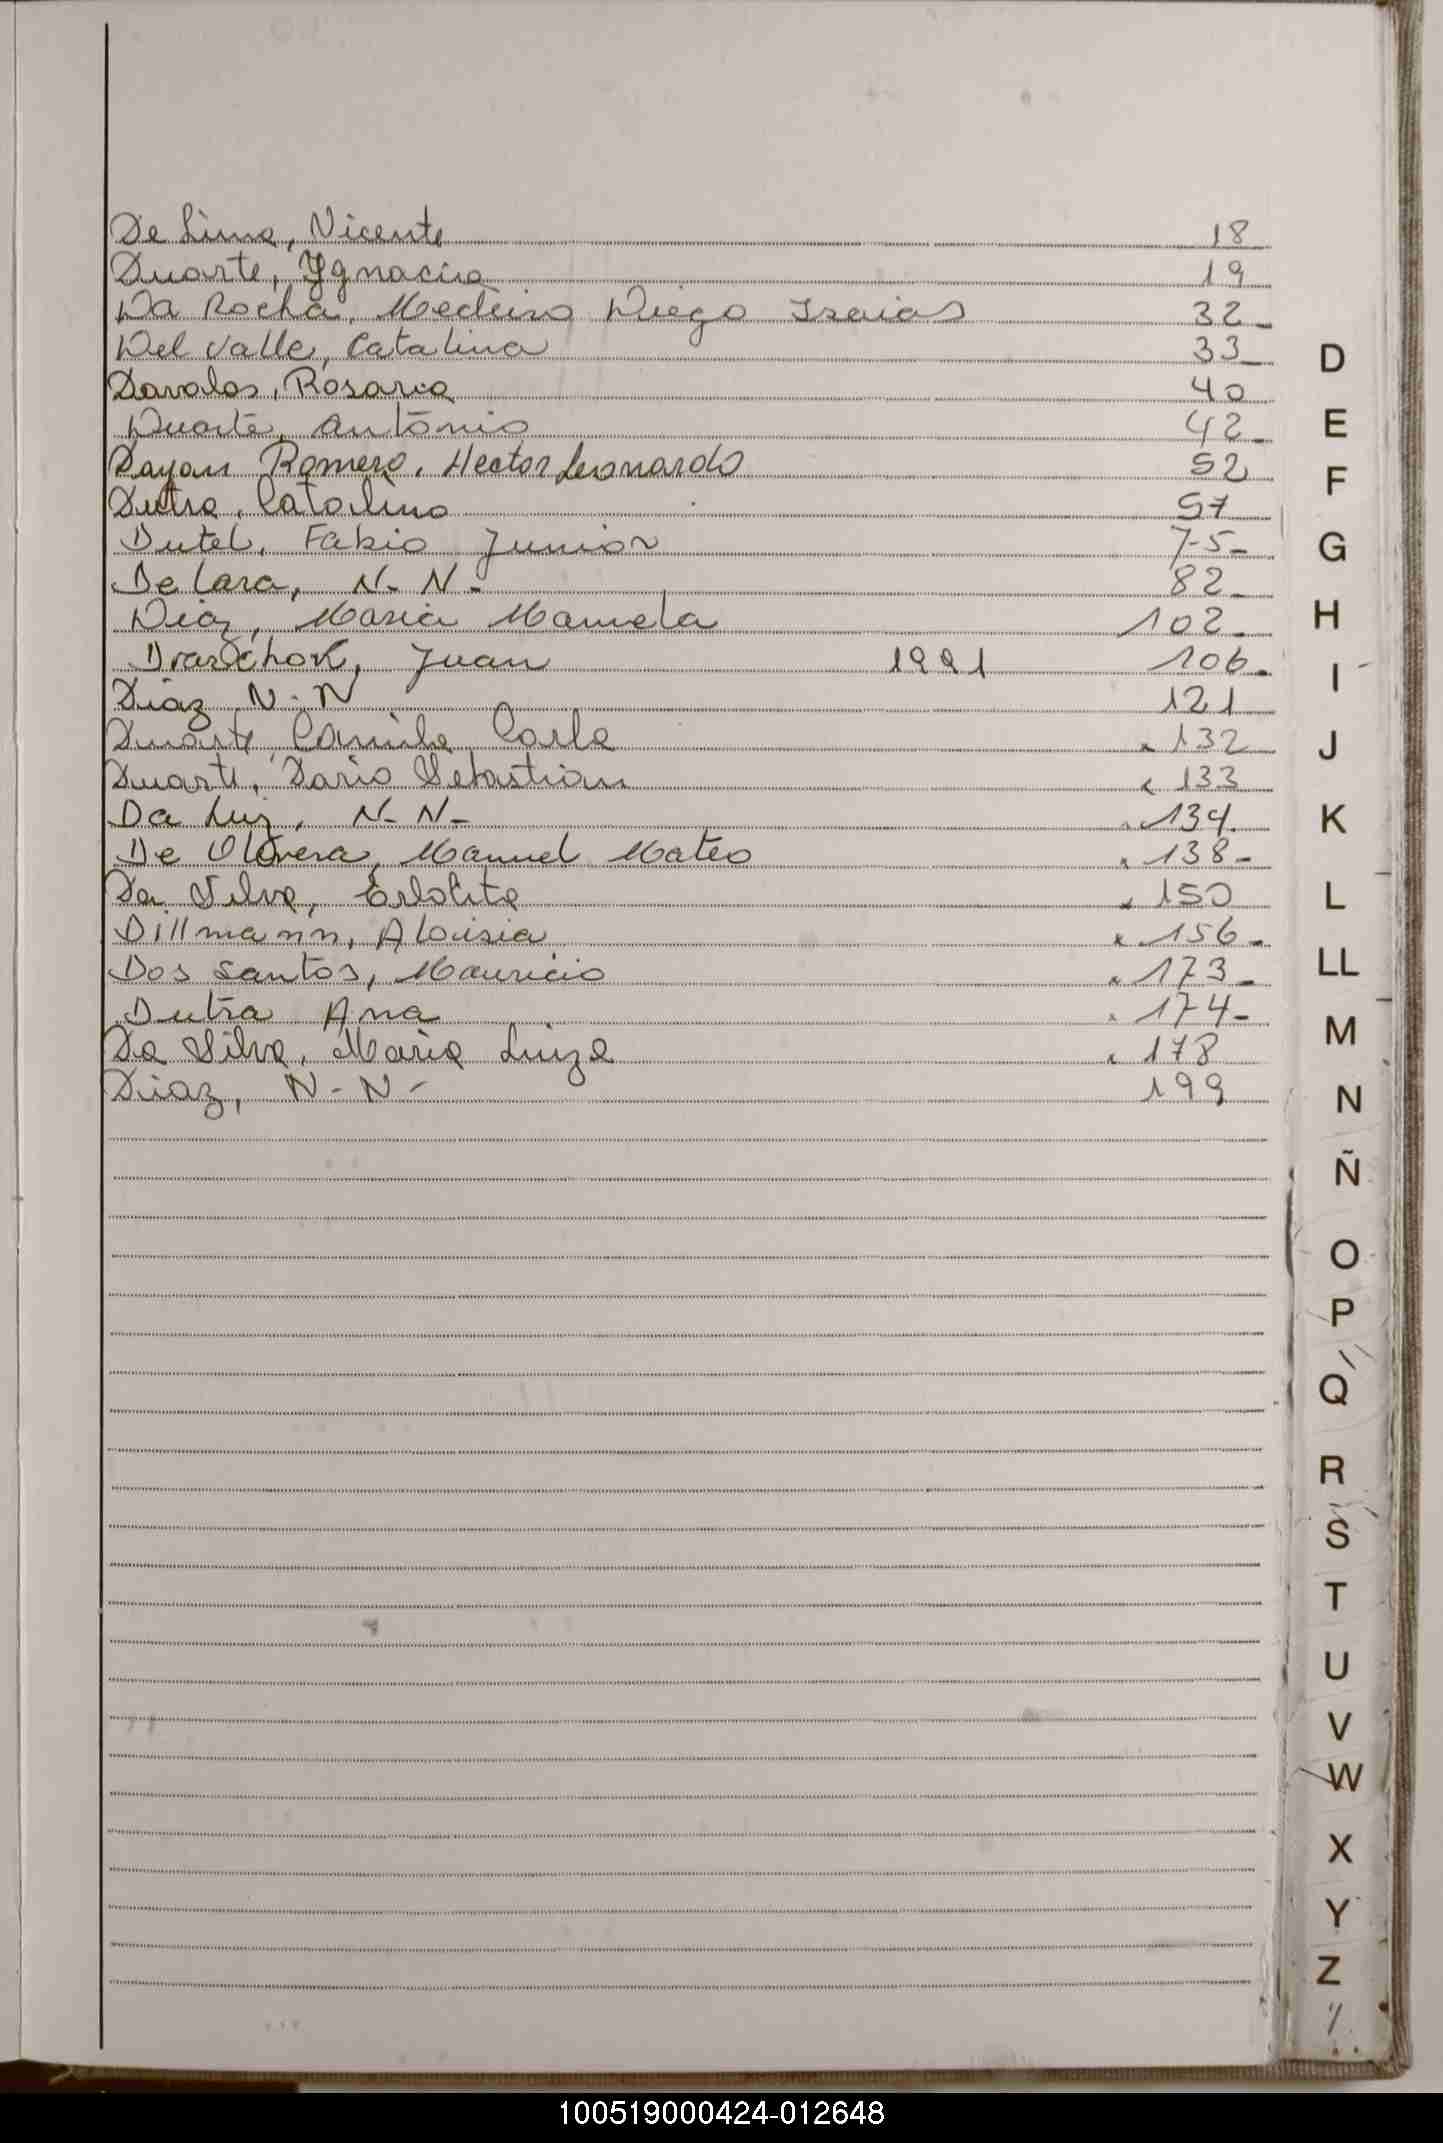 De Lima, Vicente 18
Duarte, Ygnacia 19
Da Rocha, Medeiro Diego Isaias 32-
Del Valle, Catalina 33-
Davalos, Rosario 40
Duarte, Antonio 42-
Dayan Romero, Hector Leonardo 52
Dutra, Catalino 57
Dutel, Fabio Junior 75-
De Lara, N-N- 82-
Diaz, Maria Mamela 102-
Juan 1991 106-
Diaz N-N 121
Duarte, Camila Carla " 132
Duarte, Dario Sebastian " 133
Da Luz, N-N- " 134-
De Olivera, Manuel Mateo " 138-
Da Silva, " 150
Dillmann, Aloisia " 156-
Dos Santos, Mauricio " 173-
Dutra Ana " 174-
Da Silva, Maria Luiza " 178
Diaz, N-N- 199
D
E
F
G
H
I
J
K
L
LL
M
N
Ñ
O
P
Q
R
S
T
U
V
W
X
Y
Z
100519000424-012648